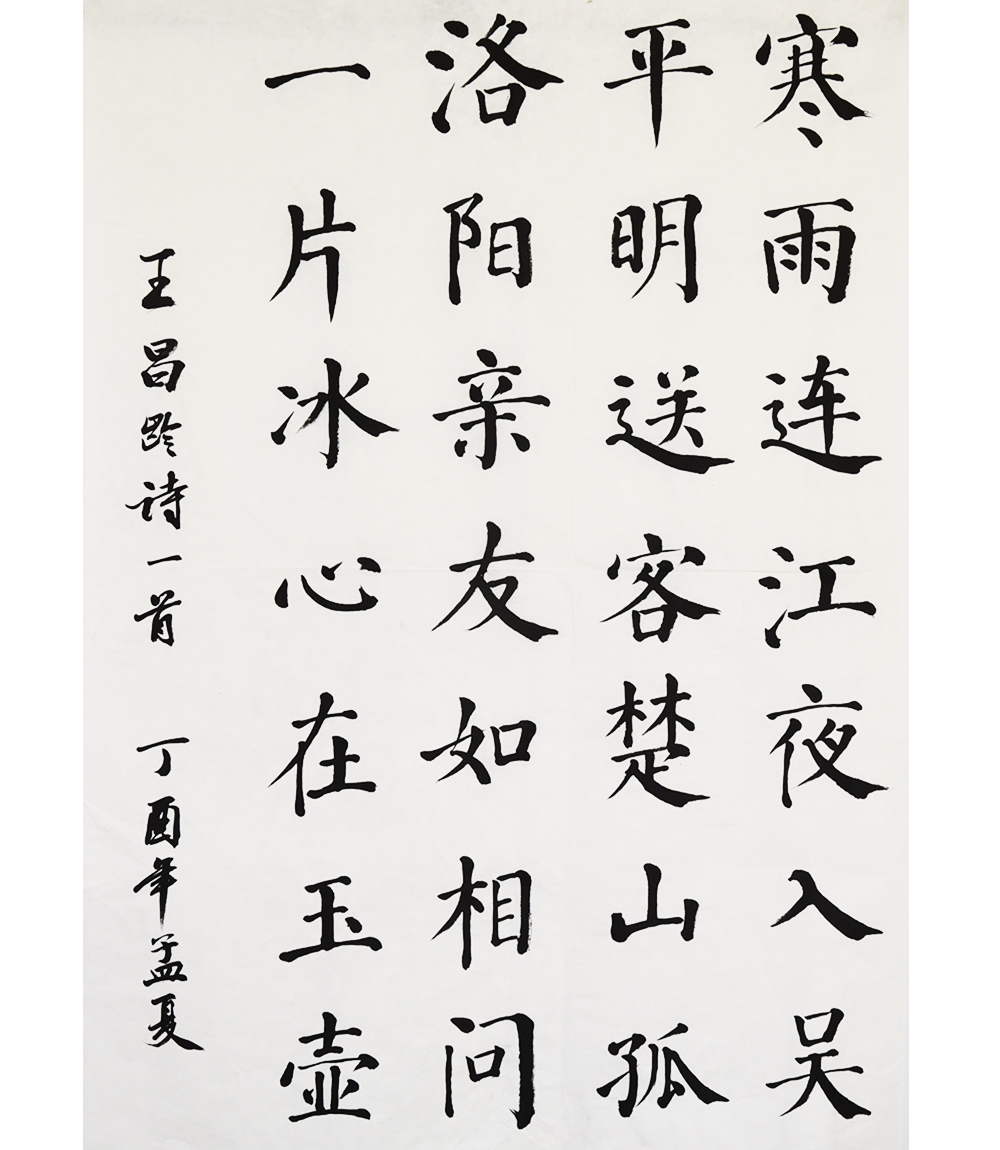 寒雨连江夜入吴
平明送客楚山孤
洛阳亲友如相问
一片冰心在玉壶
王昌龄诗一首 丁酉年孟夏